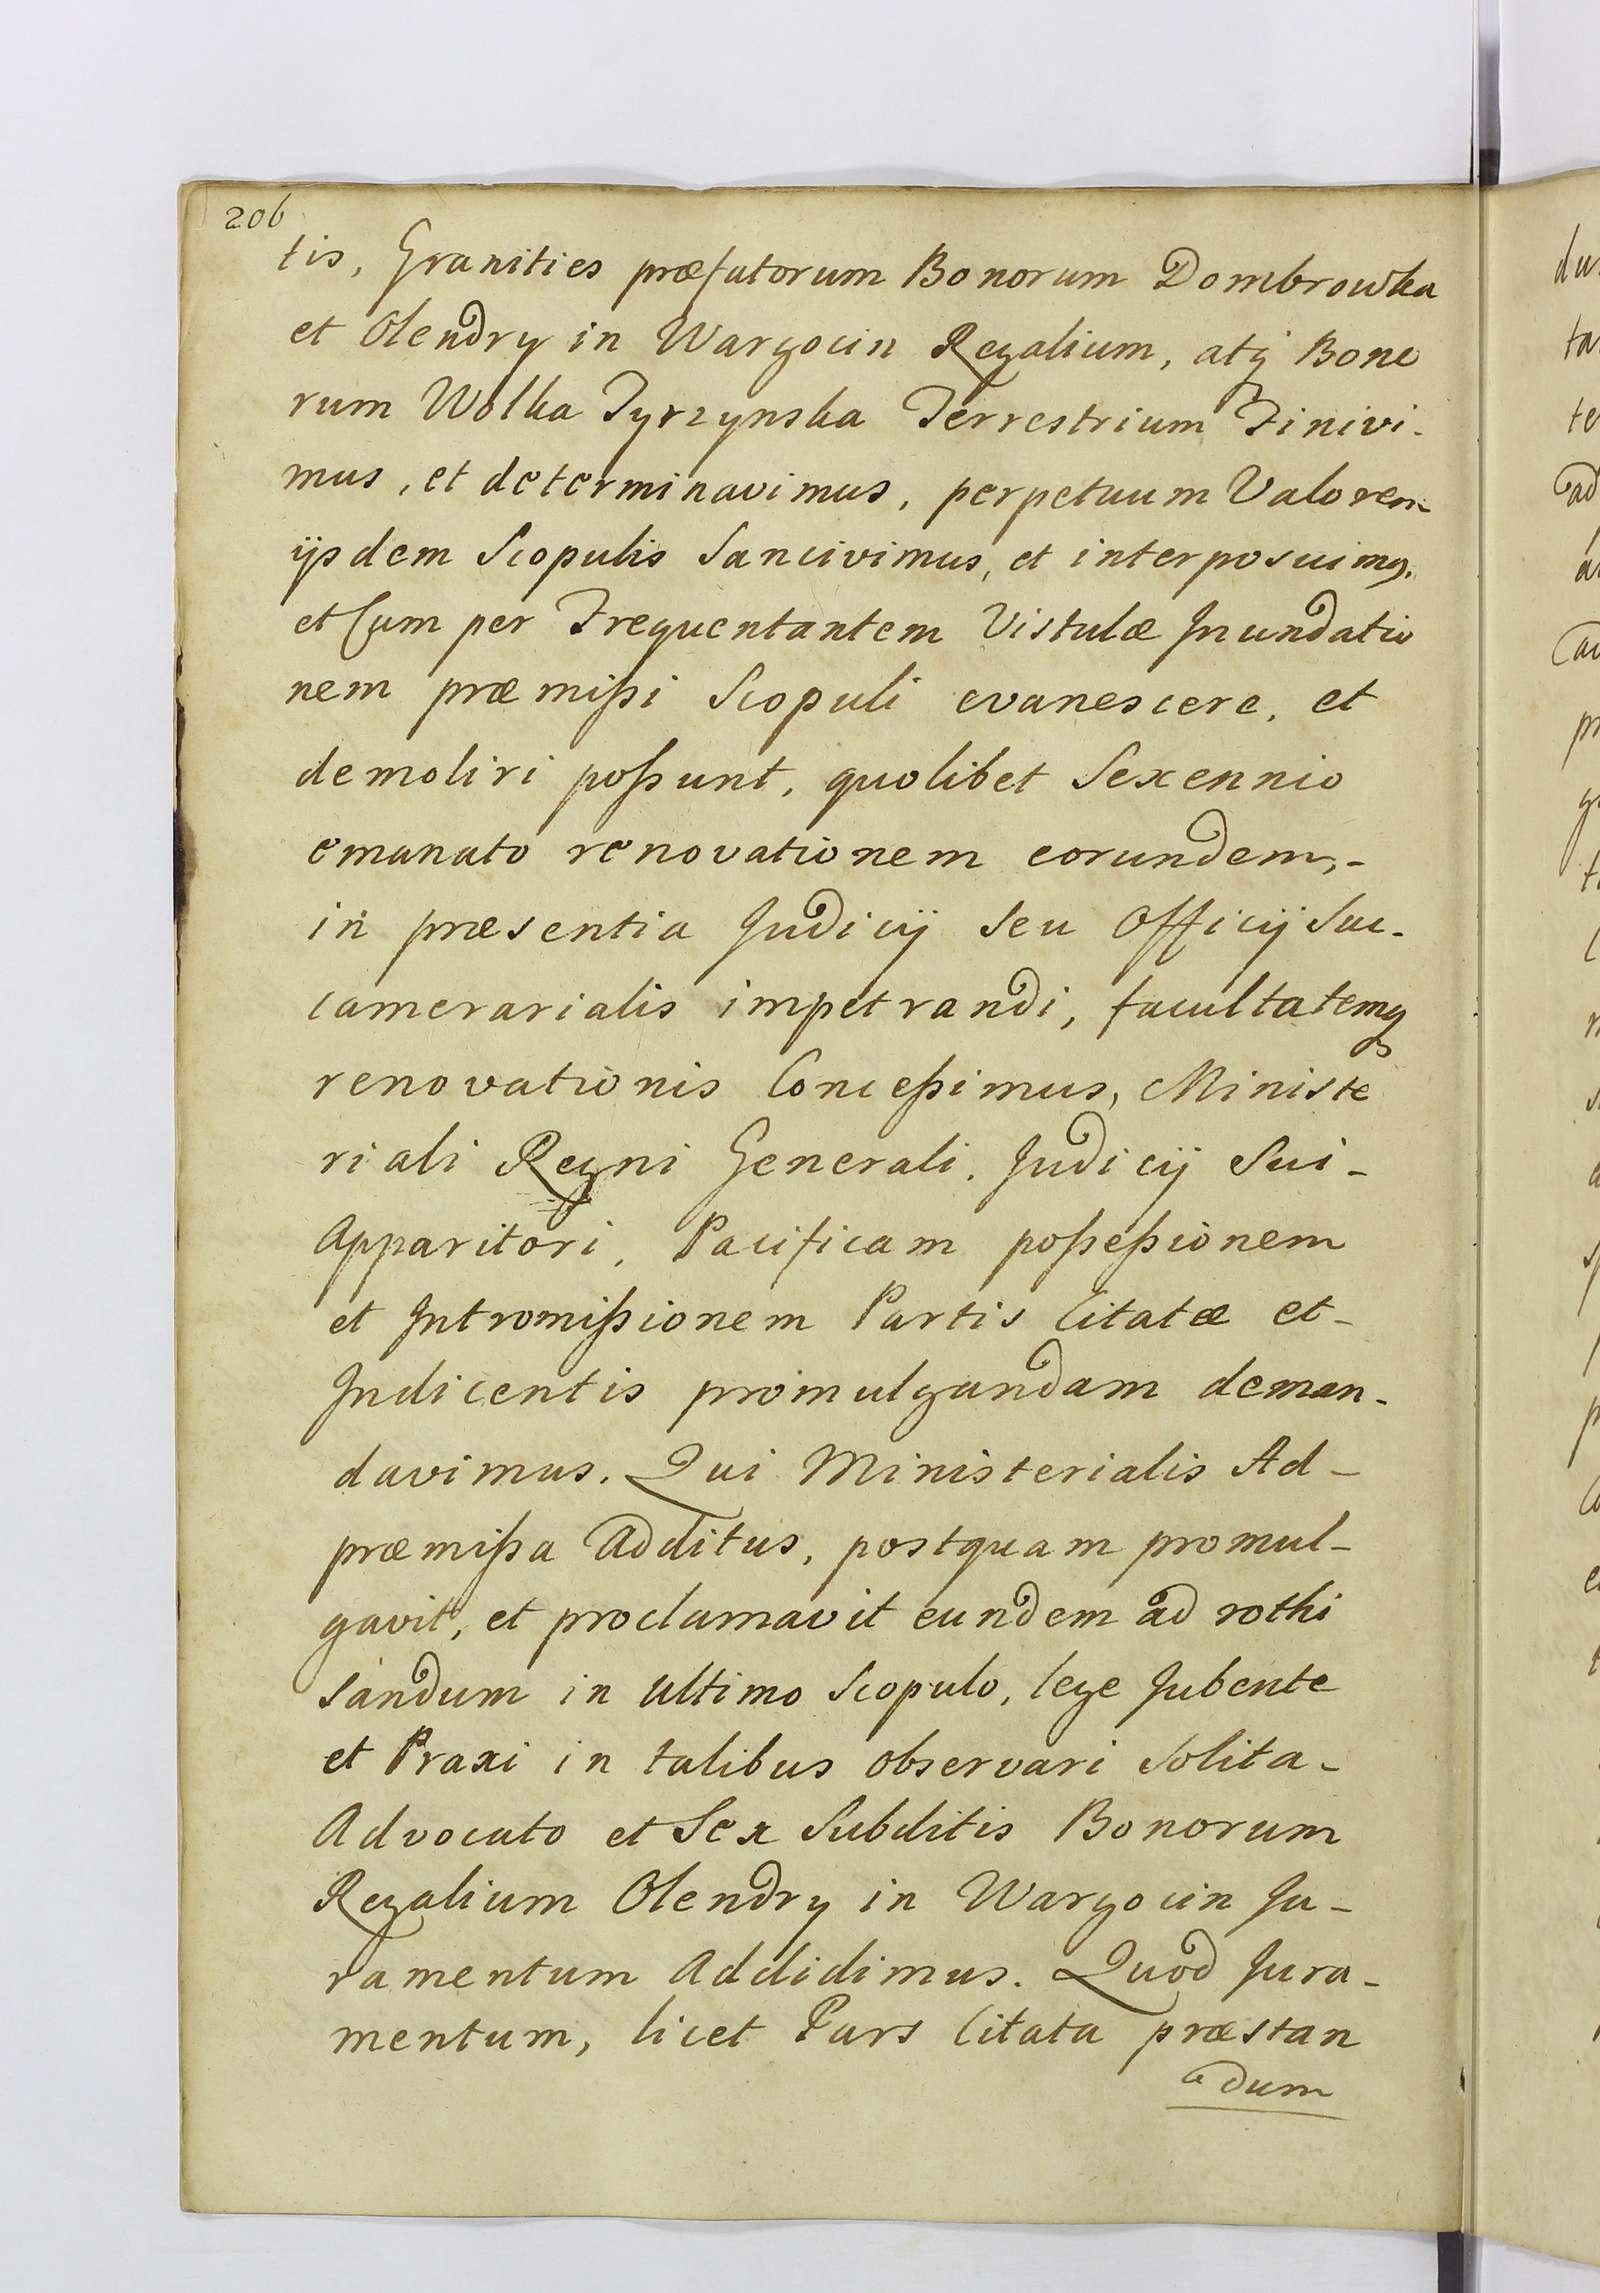 206
tis, Granities præfatorum Bonorum Dombrowka
et Olendry in Wargocin Regalium, atq́ Bono
rum Wolka Tyrzynska Terrestrium Finivi-
mus, et determinavimus, perpetuum Valorem
ijsdem Scopulis Sancivimus, et interposuimg.
et Cum per Frequentantem Vistulæ Inundatio
nem præmißi Scopuli evanescere, et
demoliri poßunt, quolibet Sexennio
emanato renovationem eorundem,-
in præsentia Judicij seu Officij Suc-
camerarialis impetrandi, facultatemq
renovationis Conceßimus, Ministe
riali Regni Generali, Judicij Sui-
Apparitori, Pacificam poßeßionem
et Intromißionem Partis Citatæ et-
Indicentis promulgandam deman-
davimus. Qui Ministerialis Ad-
præmißa Additus, postquam promul-
gavit, et proclamavit eundem ad rothi
sandum in ultimo Scopulo, lege Jubente
et Praxi in talibus observari Solita-
Advocato et Sex Subditis Bonorum
Regalium Olendry in Wargocin Ju-
ramentum Addidimus. Quod Jura-
mentum, licet Pars Citata præstan
dum
du
ta
te
ad